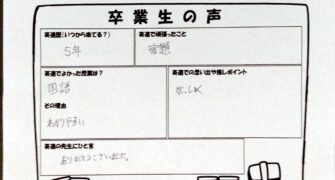 卒業生の声
英進歴(いつから来てる?)
5年
英進で頑張ったこと
宿題
英進でよかった授業は?
国語
その理由
わかりやすい
英進での思い出や推しポイント
英進の先生にひと言
ありがとうございました。